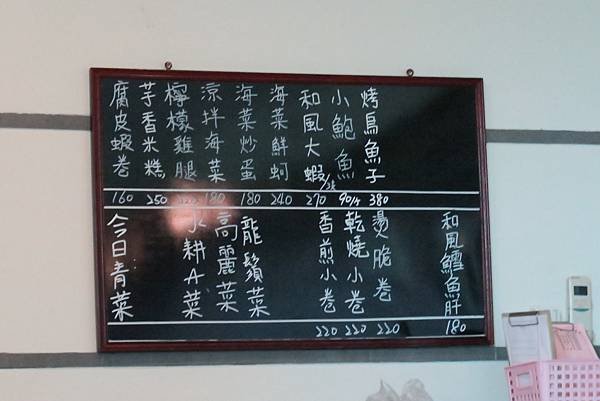 烤烏魚子 380
小鮑魚 90/个
和風大蝦 270
海菜鮮蚵 240
海菜炒蛋 180
涼拌海菜 180
檸檬雞腿
芋香米糕 250
腐皮蝦卷 160
和風鱈魚肝 180
燙脆卷 220
乾燒小卷 220
香煎小卷 220
龍鬚菜
高麗菜
水耕A菜
今日青菜